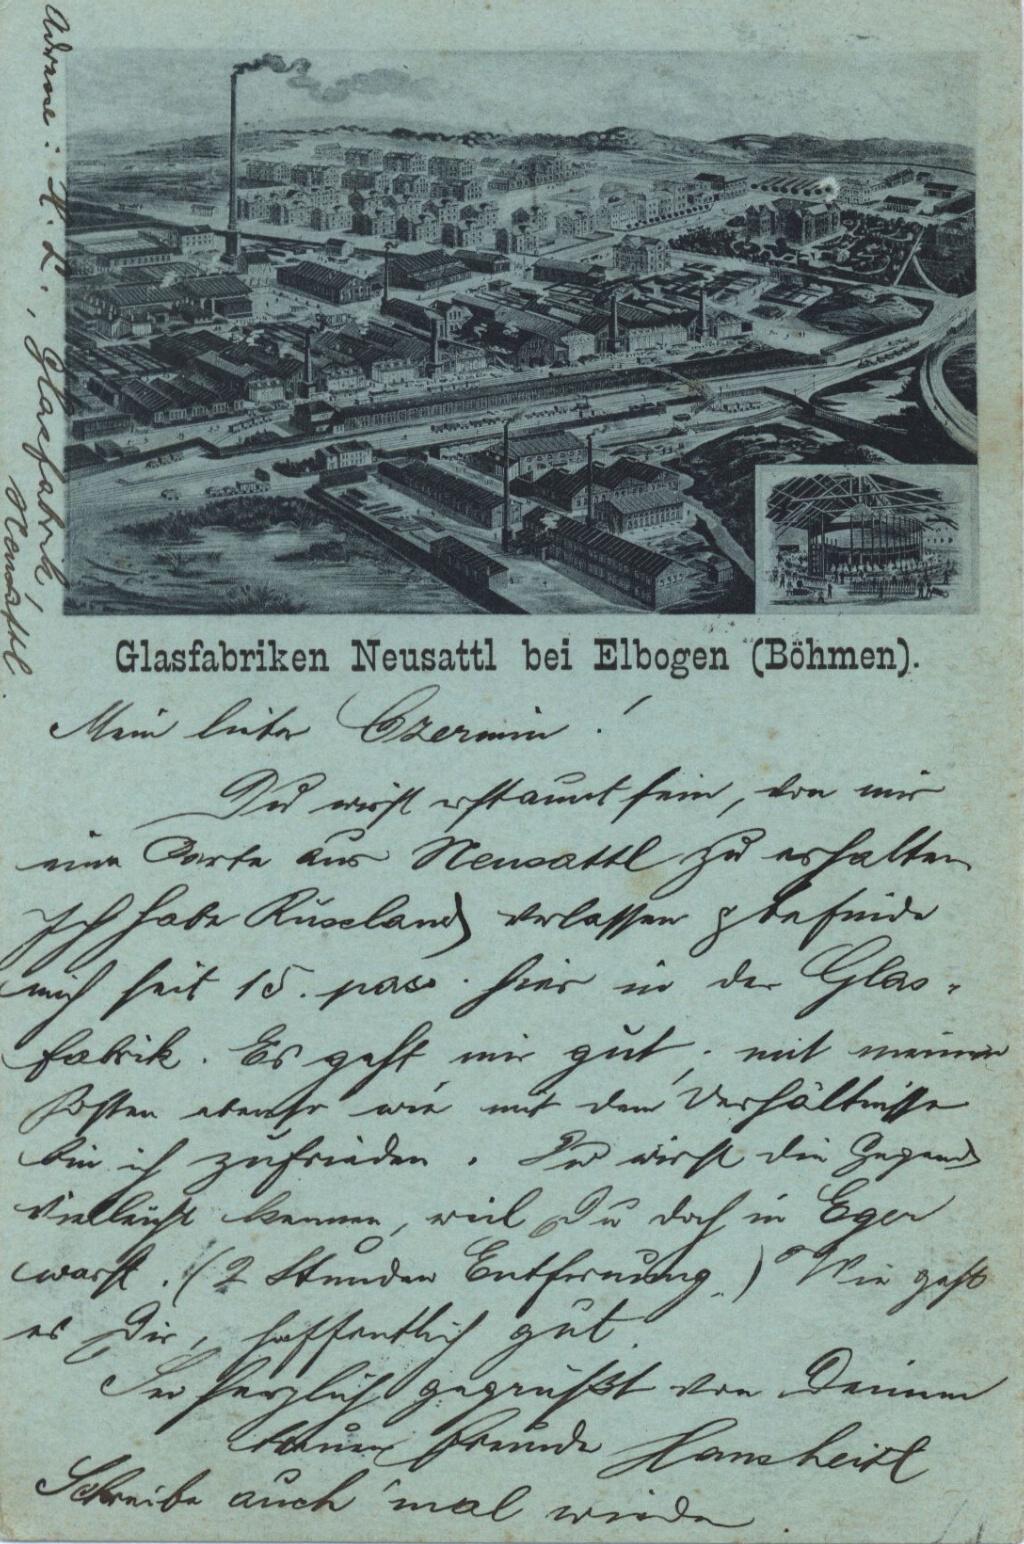 Adresse: H. L., Glasfabrik
Neusattl.
Glasfabriken Neusattl bei Elbogen (Böhmen).
Mein lieber Czermin!
Du wirst erstaunt sein, von mir
eine Carte aus Neusattl zu erhalten
Ich habe Russland verlassen & befinde
mich seit 15. pass. hier in der Glas-
fabrik. Es geht mir gut, mit meinem
Posten ebenso wie mit den Verhältnisse
bin ich zufrieden. Du wirst die Gegend
vielleicht kennen, weil Du doch in Eger
warst. (2 Stunden Entfernung.) Wie geht
es Dir, hoffentlich gut.
Sei herzlich gegrüßt von Deinem
treuen Freunde Hans
Schreibe auch mal wieder.